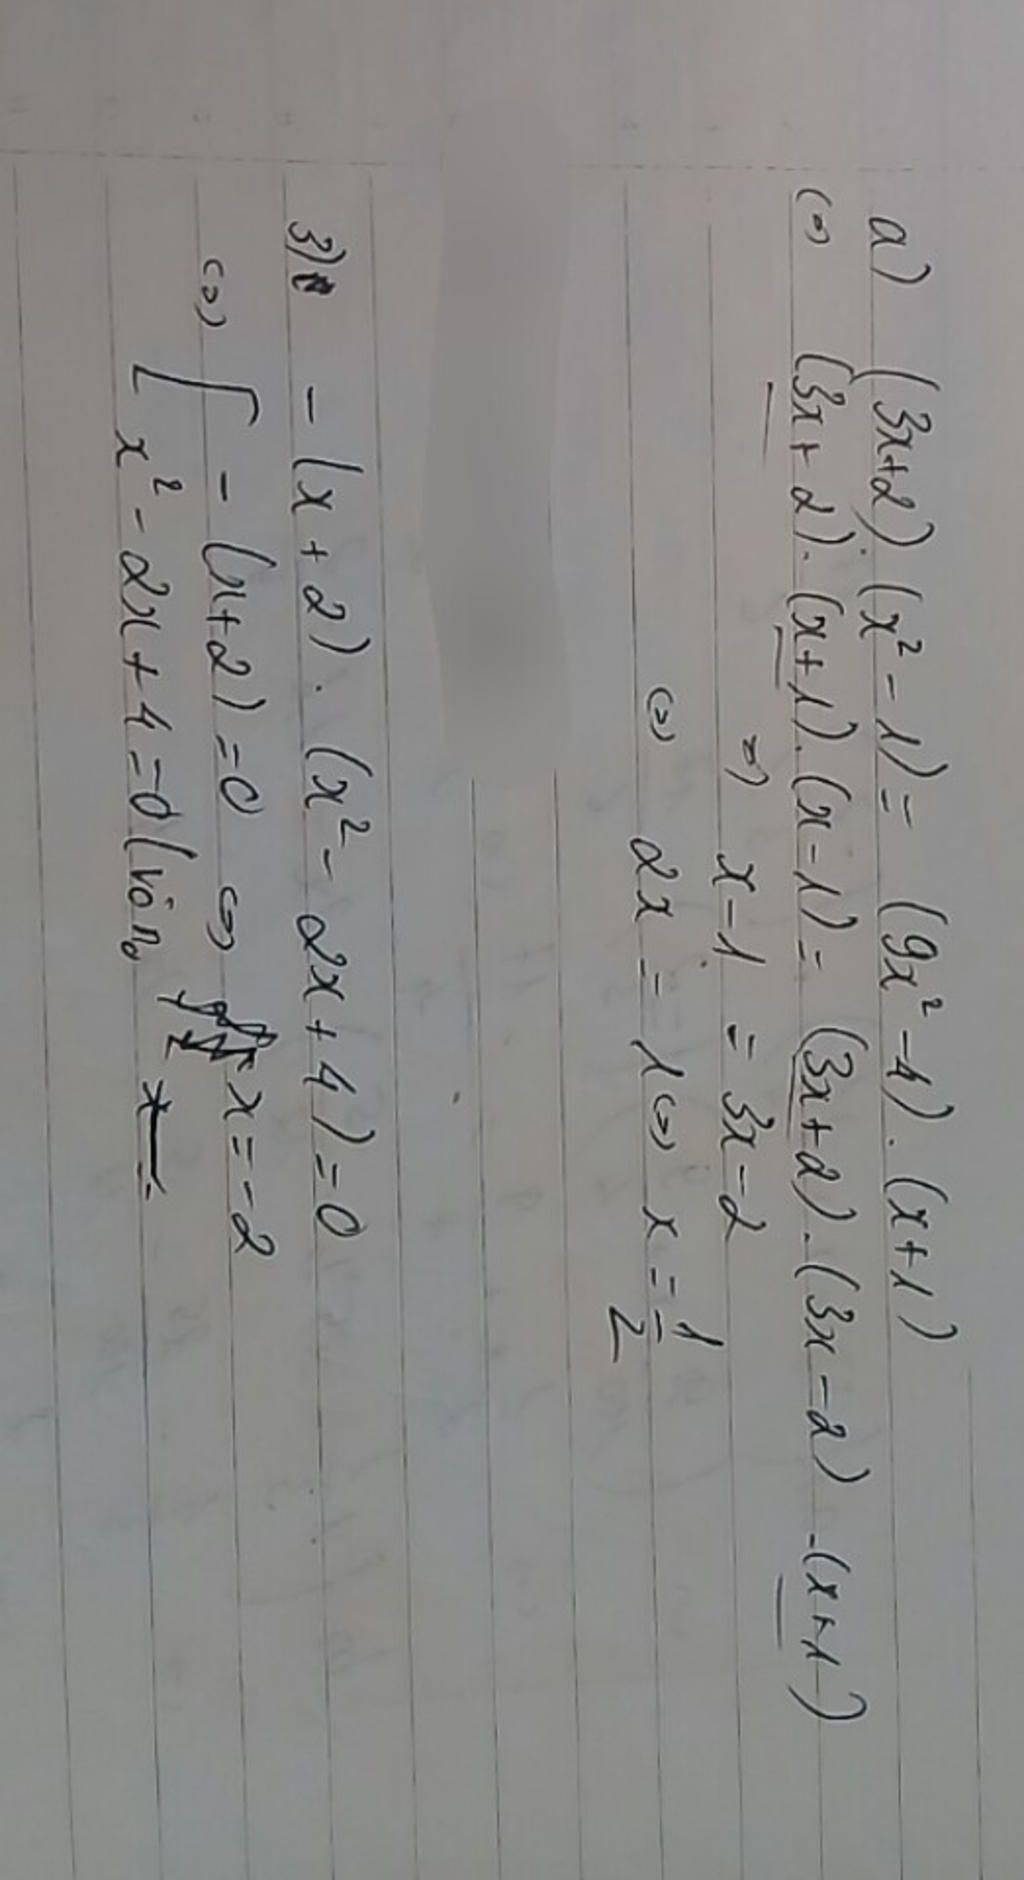 a) (3x+2).(x²-1)= (9x²-4).(x+1)
<=> (3x+2).(x+1).(x-1)= (3x+2).(3x-2).(x+1)
=> x-1 = 3x-2
<=> 2x = 1 <=> x = 1/2
3) -(x+2).(x²-2x+4)=0
<=> [ -(x+2)=0 <=> x=-2
x²-2x+4=0 (vô n₀